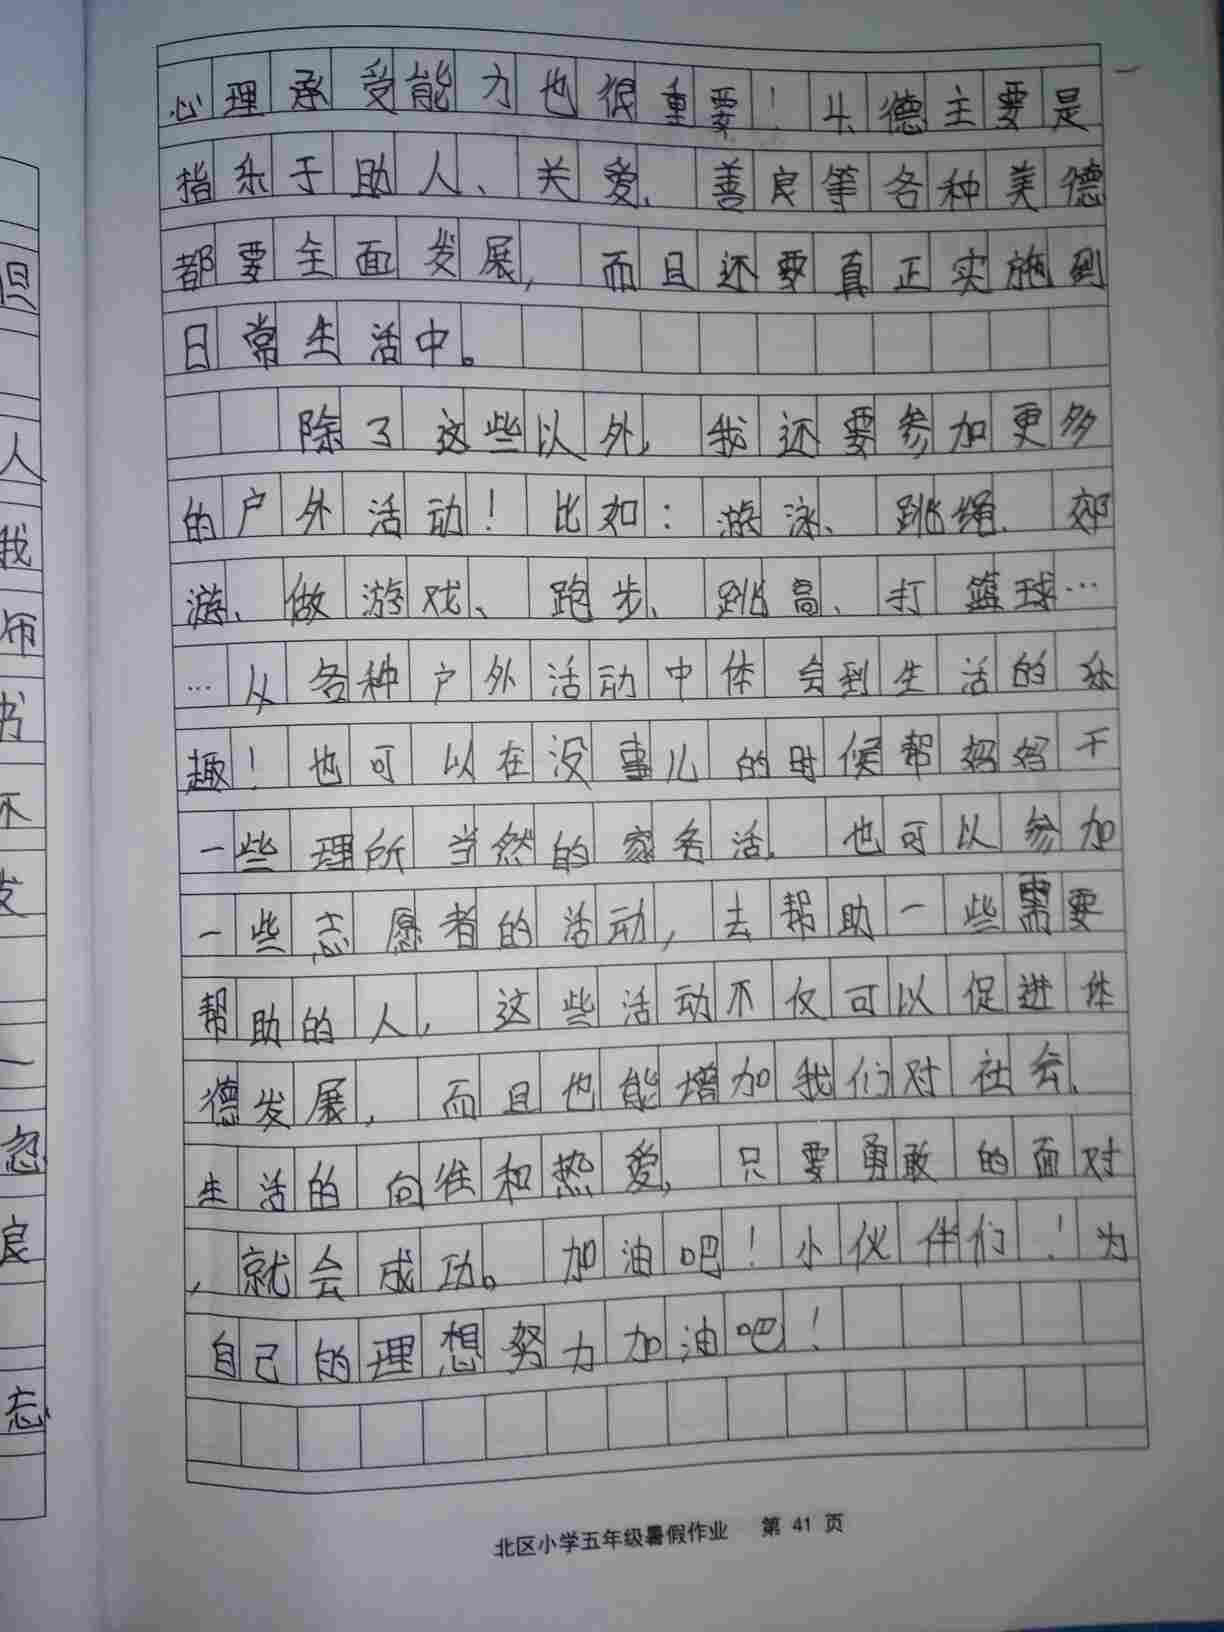 心理承受能力也很重要！4、德主要是
指乐于助人、关爱、善良等各种美德
都要全面发展，而且还要真正实施到
日常生活中。
除了这些以外，我还要参加更多
的户外活动！比如：游泳、跳绳、郊
游、做游戏、跑步、跳高、打篮球…
…从各种户外活动中体会到生活的乐
趣！也可以在没事儿的时候帮妈妈干
一些理所当然的家务活，也可以参加
一些志愿者的活动，去帮助一些需要
帮助的人，这些活动不仅可以促进体
德发展，而且也能增加我们对社会、
生活的向往和热爱，只要勇敢的面对
，就会成功。加油吧！小伙伴们！为
自己的理想努力加油吧！
北区小学五年级暑假作业 第 41 页
但
人
我
师
书
不
发
一
忽
良
志